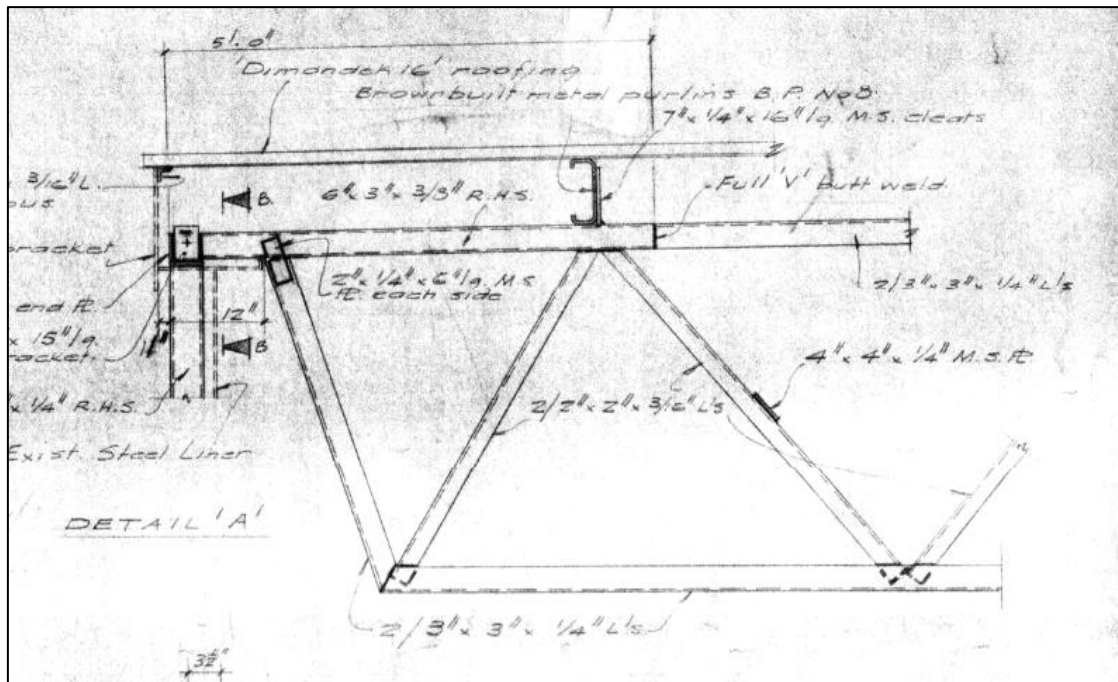 5'.0"
'Dimondek 16' roofing
Brownbuilt metal purlins B.P. No8.
7"x 1/4"x 16"lg. M.S. cleats
3/16" L.
6"x 3"x 3/8" R.H.S.
Full 'V' butt weld.
B.
bracket
2"x 1/4"x 6"lg. M.S.
PL each side
2/3"x 3"x 1/4" L's
end PL
12"
x 15"lg.
bracket.
B
4"x 4"x 1/4" M.S. PL
x 1/4" R.H.S.
2/2"x 2"x 3/16" L's
Exist. Steel Liner
DETAIL 'A'
2/3"x 3"x 1/4" L's
3½"